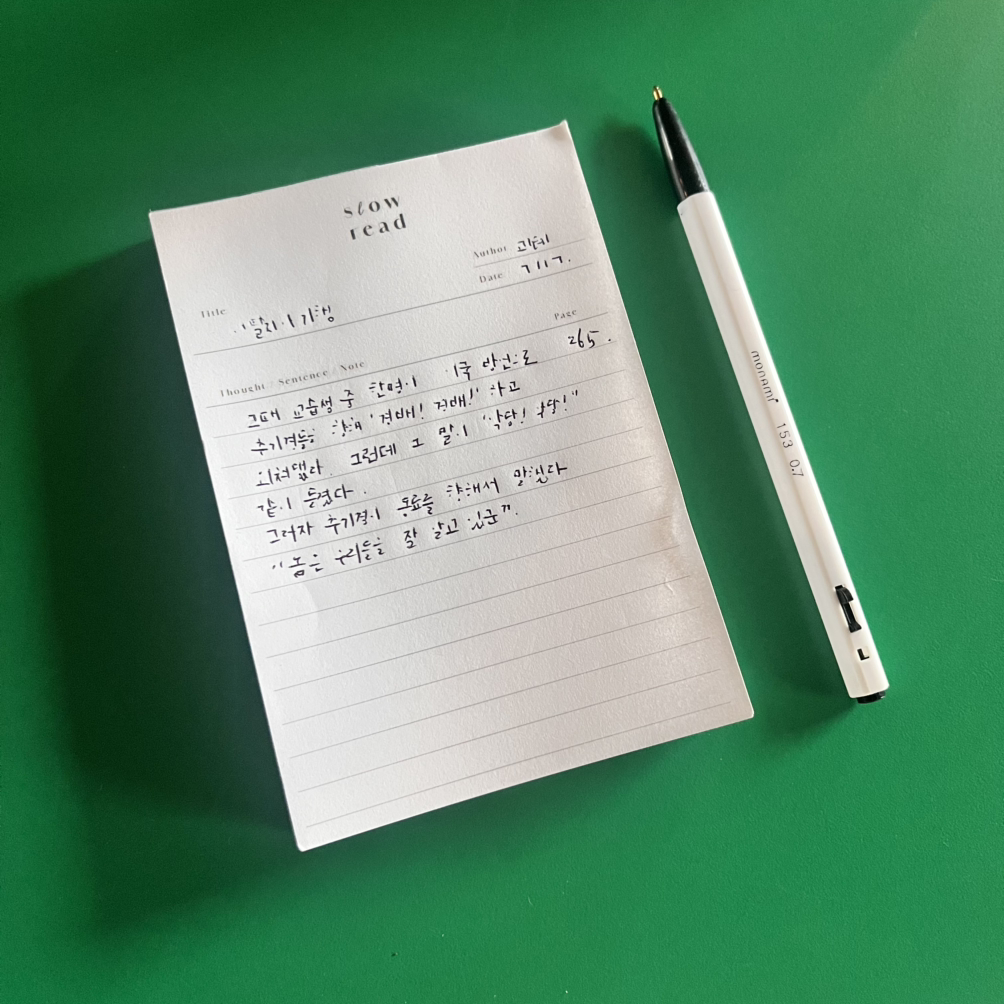 slow
read
Author 괴테
Date 7/17.
Title
이탈리아 기행
Page
Thought / Sentence / Note
265.
그때 교습생 중 한명이 방언으로
추기경들을 향해 "경배! 경배!" 하고
외쳐댔다. 그런데 그 말이 "악당! 악당!"
같이 들렸다.
그러자 추기경이 동료를 향해서 말했다
"놈은 우리들을 잘 알고 있군".
monami 153 0.7